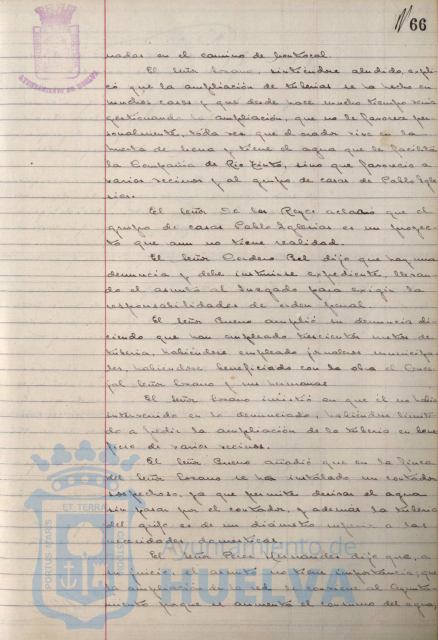 66
AYUNTAMIENTO DE HUELVA
nadas en el camino de
El Señor Lozano, sintiéndose aludido, expli-
có que la ampliación de tuberías se ha hecho en
muchos casos y que desde hace mucho tiempo venía
gestionando la ampliación, que no le favorece per-
sonalmente, toda vez que el orador vive en la
huerta de Mena y tiene el agua que le facilita
la Compañía de Rio Tinto, sino que favorece a
varios vecinos y al grupo de casas de Pablo Igle-
sias.
El Señor De los Reyes aclaró que el
grupo de casas Pablo Iglesias es un proyec-
to que aun no tiene realidad.
El Señor Cordero Bel dijo que hay una
denuncia y debe instruirse expediente, llevan-
do el asunto al Juzgado para exigir la
responsabilidades de orden penal
El Señor Bueno amplió su denuncia di-
ciendo que han empleado trescientos metros de
tubería, habiéndose empleado jornaleros municipa-
les, habiéndose beneficiado con la obra el Conce-
jal Señor Lozano y sus hermanas
El Señor Lozano insistió en que él no había
intervenido en lo denunciado, habiéndose limita-
do a pedir la ampliación de la tubería en bene-
ficio de varios vecinos.
El Señor Bueno añadió que en la finca
del Señor Lozano se ha instalado un contador
sospechoso, ya que permite desviar el agua
sin pasar por el contador, y además la tubería
del grifo es de un diámetro superior a las
necesidades domesticas.
El Señor Hernandez dijo que, a
su juicio, el asunto no tiene importancia; que
la ampliación de la red, le conviene al Ayunta-
miento porque se aumenta el consumo del agua,
ET TERRA
PORTUS MARIS
CUSTODIA
Ayuntamiento de
HUELVA